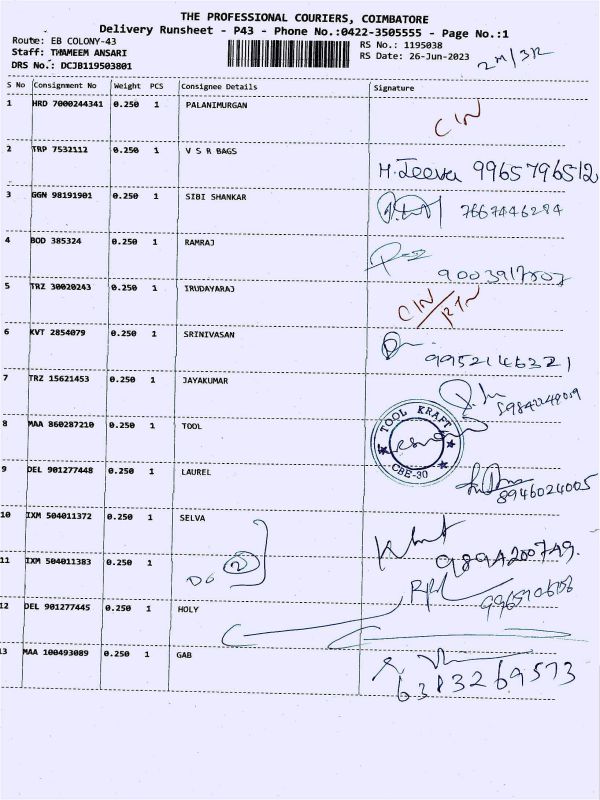 THE PROFESSIONAL COURIERS, COIMBATORE
Delivery Runsheet - P43 - Phone No.:0422-3505555 - Page No.:1
Route: EB COLONY-43
RS No.: 1195038
Staff: THAMEEM ANSARI
RS Date: 26-Jun-2023
DRS No.: DCJB119503801
2M/3R
S No Consignment No Weight PCS Consignee Details Signature
1 HRD 7000244341 0.250 1 PALANIMURGAN
CIN
2 TRP 7532112 0.250 1 V S R BAGS
M.Jeeva 9965796512
3 GGN 98191901 0.250 1 SIBI SHANKAR
7667446284
4 BOD 385324 0.250 1 RAMRAJ
9003917807
5 TRZ 30020243 0.250 1 IRUDAYARAJ
CIN/RTN
6 KVT 2854079 0.250 1 SRINIVASAN
9952146321
7 TRZ 15621453 0.250 1 JAYAKUMAR
8 MAA 860287210 0.250 1 TOOL
TOOL KRAFT
CBE-30
9 DEL 901277448 0.250 1 LAUREL
8946024005
10 IXM 504011372 0.250 1 SELVA
9894200749.
11 IXM 504011383 0.250 1
D6 2
12 DEL 901277445 0.250 1 HOLY
13 MAA 100493089 0.250 1 GAB
6383269573